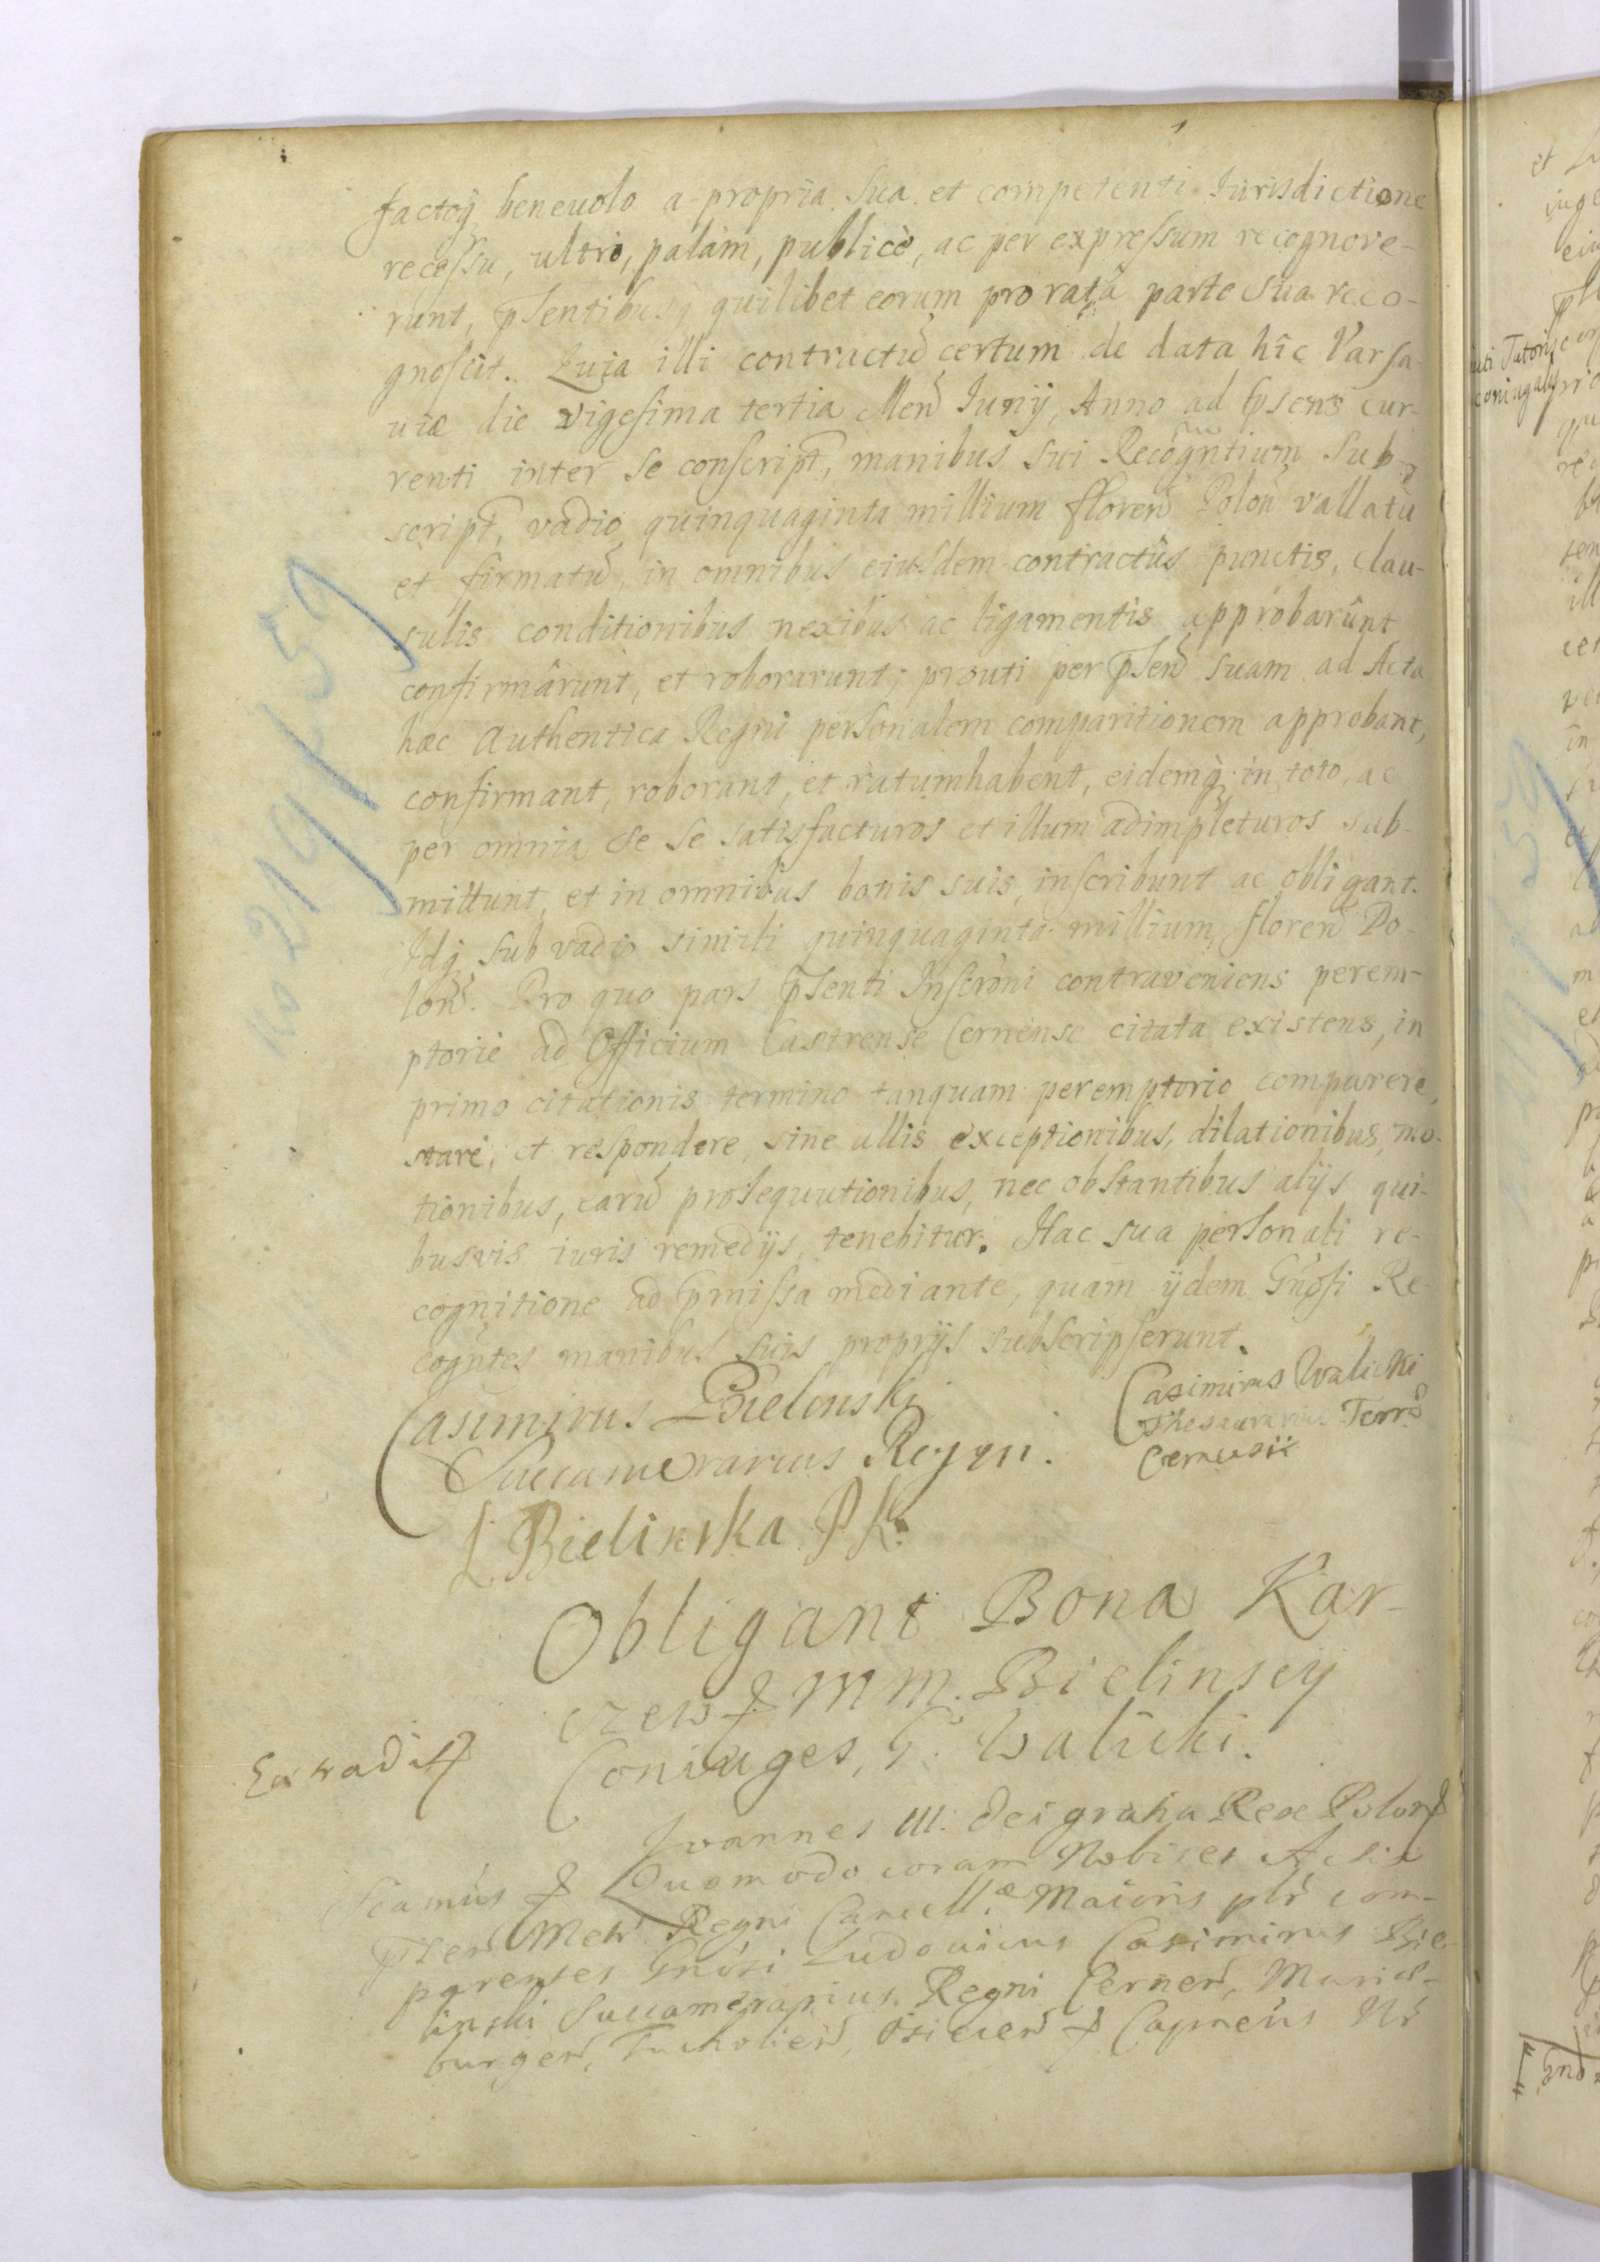 factoq̃ beneuolo a propria sua et competenti Iurisdictione
recessu, ultrò, palàm, publicè, ac per expressum recognove-
runt, pñsentibusq̃ quilibet eorum pro ratâ parte sua reco-
gnoscit. Quia illi contractũ certum de data hîc Varsa-
uiæ die vigesima tertia Mensĩs Iunij, Anno ad pñsens cur-
renti inter se conscript̃, manibus sui Recogñtium sub-
script̃, vadio quinquaginta millium floreñ Poloñ vallatũ
et firmatũ, in omnibus eiusdem contractûs punctis, clau-
sulis conditionibus nexibus ac ligamentis approbarûnt
confirmârunt, et roborarunt; prouti per pñseñ suam ad Acta
hæc Authentica Regni personalem comparitionem approbant,
confirmant, roborant, et ratumhabent, eidemq̃ in toto, ac
per omnia se se satisfacturos et illum adimpleturos sub-
mittunt, et in omnibus bonis suis, inscribunt ac obligant.
Idq̃ sub vadio simili quinquaginta millium floreñ Po-
loñ. Pro quo pars pñsenti Inscrõni contraveniens perem-
ptoriè ad Officium Castrense Cernense citata existens, in
primo citationis termino tanquam peremptorio comparere,
stare, et respondere, sine ullis exceptionibus, dilationibus, mo-
tionibus, earũ prosequutionibus, nec obstantibus alijs qui-
busvis iuris remedijs, tenebitur. Hac sua personali re-
cognitione ad p̃missa mediante, quam ijdem Gñosi Re-
cogñtes manibus suis proprijs subscripserunt.
Casimirus Bielinski
Succamerarius Regni.
Casimirus Walicki
Thesaurarius Terræ
Cernensis
L Bielinska P K.
Obligant Bona Kar-
czew ꝛ MM. Bielinscij
Coniuges, G. Walicki.
Extradit
Ioannes III. Dei gratia Rex Poloñ
Sciamus ꝛ Quomodo coram Nobis et Actis
pñseñ Metr Regni Cancell.æ Maioris plr com-
parentes Gnõsi Ludouicus Casimirus Bie-
linski Succamerarius Regni Cerneñ, Mariæ-
burgeñ, Tucholieñ, Osieceñ ꝛ Capneus Nr
No 219/159